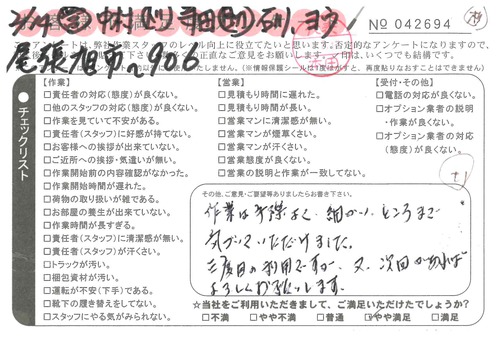 № 042694
尾張旭市 906
アンケートは、弊社作業スタッフのレベル向上に役立てたいと思います。否定的なアンケートになりますので、
【作業】
□責任者の対応(態度)が良くない。
□他のスタッフの対応(態度)が良くない。
□作業を見ていて不安がある。
□責任者(スタッフ)に好感が持てない。
□お客様への挨拶が出来ていない。
□ご近所への挨拶・気遣いが無い。
□作業開始前の内容確認がなかった。
□作業開始時間が遅れた。
□荷物の取り扱いが雑である。
□お部屋の養生が出来ていない。
□作業時間が長すぎる。
□責任者(スタッフ)に清潔感が無い。
□責任者(スタッフ)が汗くさい。
□トラックが汚い。
□梱包資材が汚い。
□運転が不安(下手)である。
□靴下の履き替えをしてない。
□スタッフにやる気がみられない。
【営業】
□見積もり時間に遅れた。
□見積もり時間が長い。
□営業マンに清潔感が無い。
□営業マンが煙草くさい。
□営業マンが汗くさい。
□営業態度が良くない。
□営業の説明と作業が一致してない。
【受付・その他】
□電話の対応が良くない。
□オプション業者の説明
・作業が良くない。
□オプション業者の対応
(態度)が良くない。
チェックリスト
その他、ご意見・ご要望等ありましたらお書き下さい。
作業は手際よく、細かいところまで
気づいていただけました。
三度目の利用ですが、又、次回があれば
よろしくお願いします。
☆当社をご利用いただきまして、ご満足いただけたでしょうか?
□不満 □やや不満 □普通 □やや満足 □満足